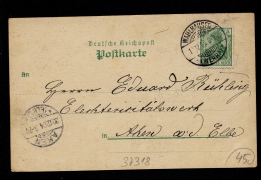 Deutsche Reichspost
Postkarte
An
Herrn Eduard Rühling
Elektricitätswerk
Aken a/d Elbe
AKEN
37318
45,-